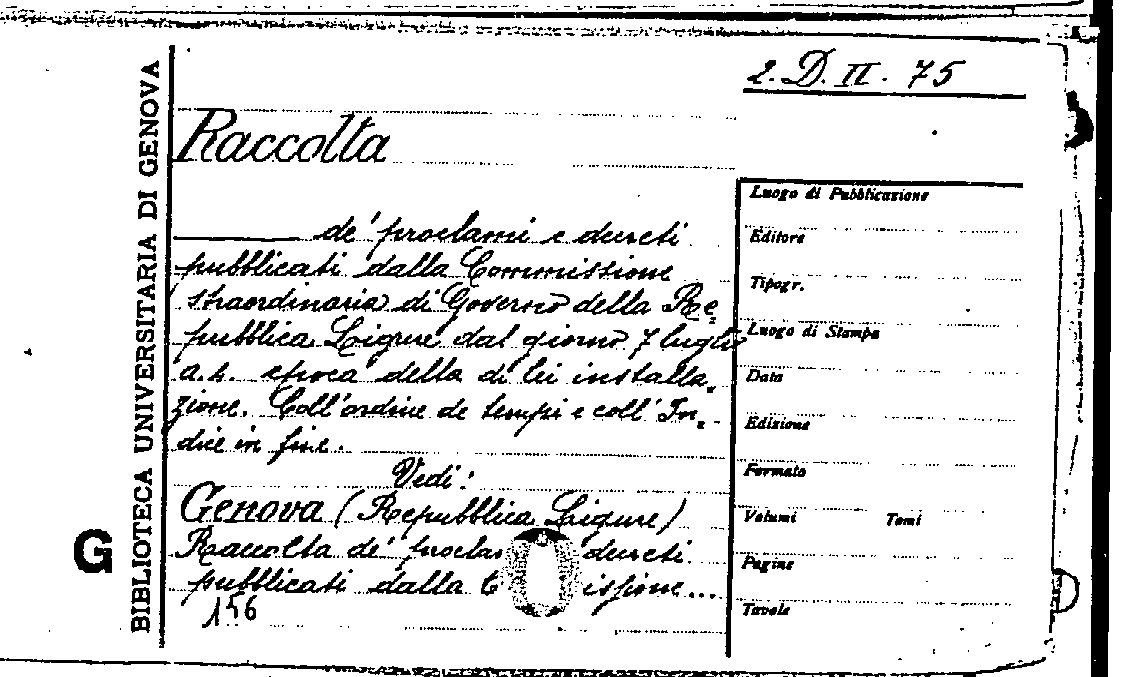 2. D. II. 75
BIBLIOTECA UNIVERSITARIA DI GENOVA
G
Raccolta
de' proclami e decreti
pubblicati dalla Commissione
straordinaria di Governo della Re=
pubblica Ligure dal giorno 7 luglio
a. s. epoca della di lei installa=
zione. Coll'ordine de tempi e coll'In=
dice in fine.
Vedi:
Genova (Repubblica Ligure)
Raccolta de' decreti
pubblicati dalla
156
Luogo di Pubblicazione
Editore
Tipogr.
Luogo di Stampa
Data
Edizione
Formato
Volumi Tomi
Pagine
Tavole